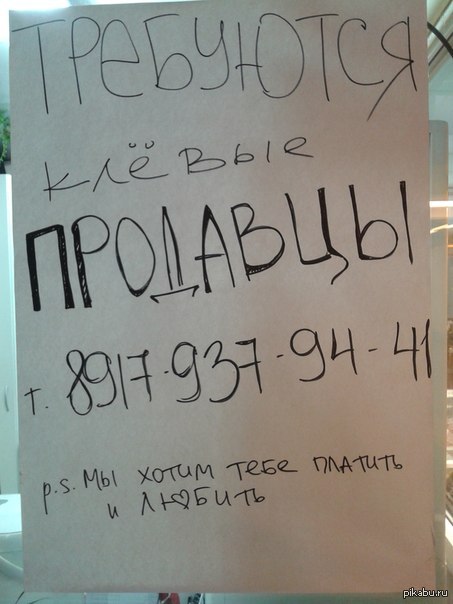 ТРЕБУЮТСЯ
клёвые
ПРОДАВЦЫ
т. 8917-937-94-41
p.s. Мы хотим тебе платить
и любить
pikabu.ru